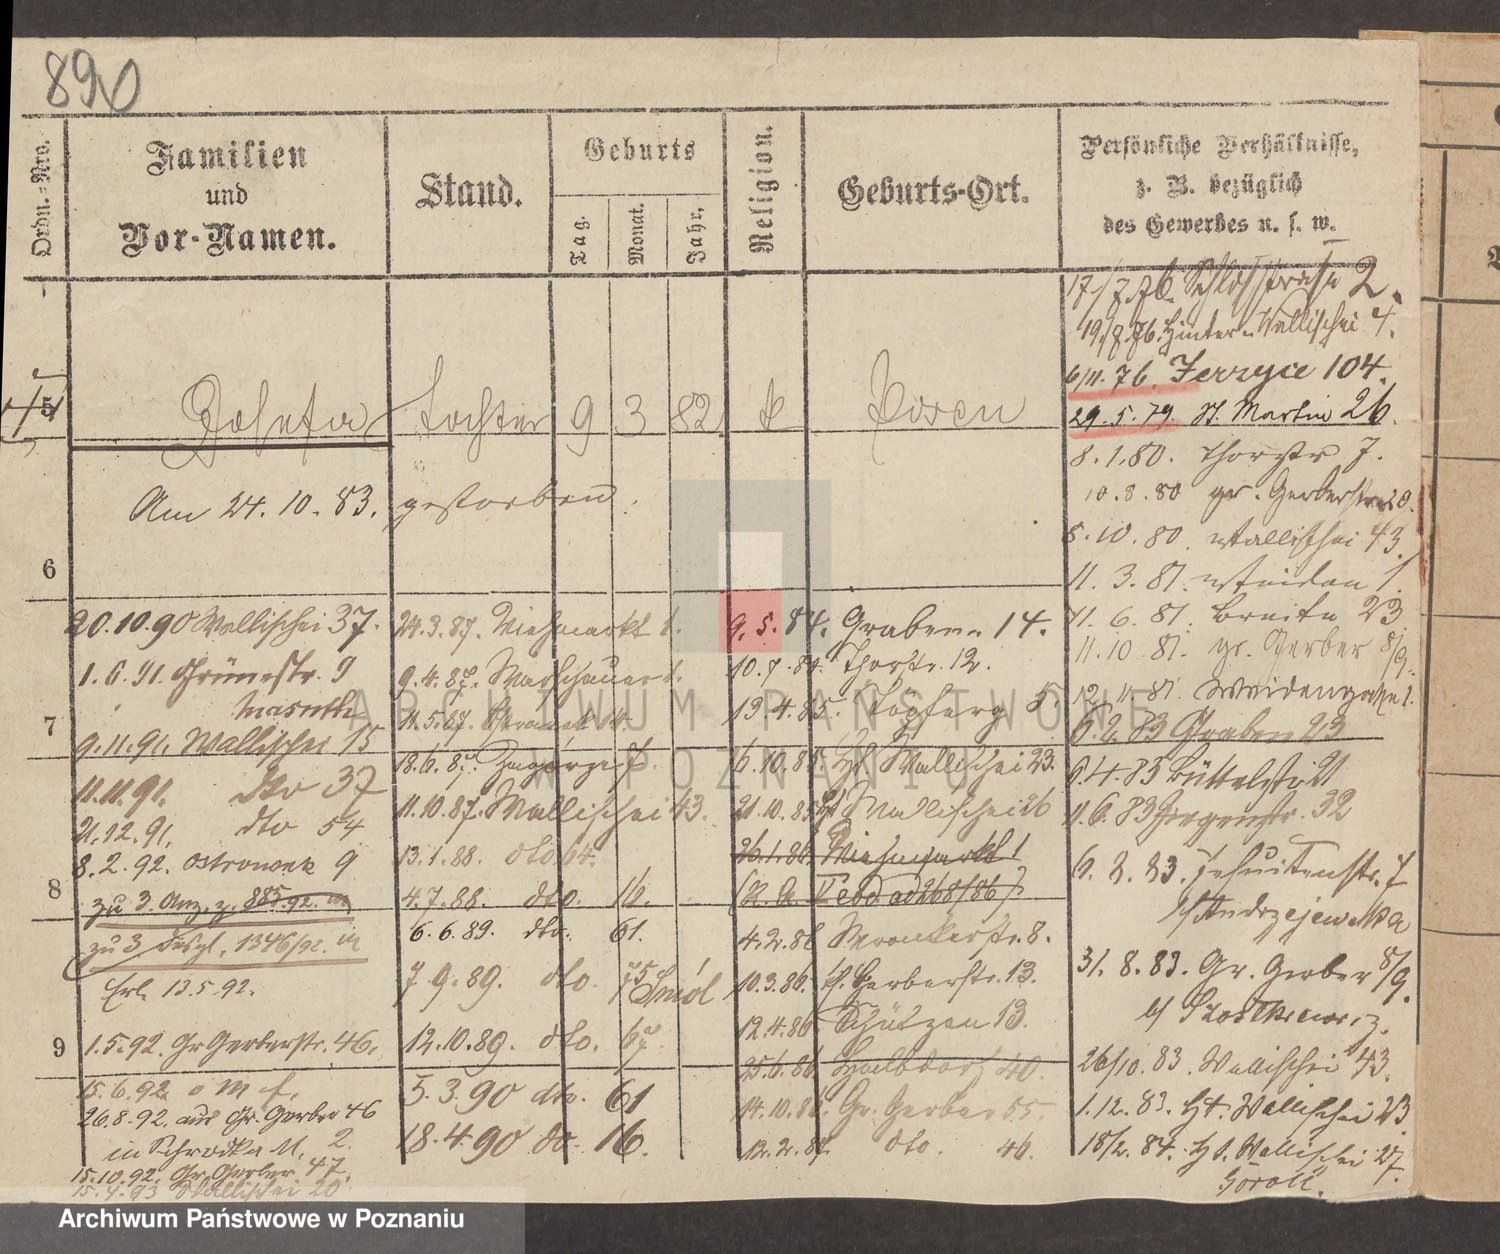 890
Ordn.=Nro.
Familien
und
Vor-Namen.
Stand.
Geburts
Tag.
Monat.
Jahr.
Religion.
Geburts-Ort.
Persönliche Verhältnisse,
z. B. bezüglich
des Gewerbes u. s. w.
5
Tochter 9 3 82 k Posen
Am 24. 10. 83. gestorben.
6
7
8
9
20.10.90 Wallischei 37.
1. 6. 91. Grünestr. 9
9.11.91. Wallischei 15
11.11.91. dto 37
21.12.91. dto 54
8.2.92. Ostrowek 9
zu 3. Anz. z. 885.92. in
zu 3 desgl. 1346/92. in
Erl. 13.5.92.
1.5.92. Gr Gerberstr. 46.
15.6.92.
26.8.92. aus Gr. Gerber 46
in Schrodka M. 2.
15.10.92. Gr. Gerber 47.
15.4.93 Wallischei 20
24.3.87. Viehmarkt 1.
9.4.87. Warschauer 1.
11.5.87.
18.6.87. Zagorze
11.10.87. Wallischei 43.
13.1.88. dto 64.
4.7.88. dto. 16.
6.6.89. dto. 61.
7.9.89. dto 75
12.10.89. dto.
5.3.90 dto. 61
18.4.90 do. 16.
9.5.84. Graben 14.
10.7.84. Thorstr. 12.
13.4.85. Töpferg 5.
6.10.85. Ht. Wallischei 23.
21.10.85. Ht. Wallischei 26
26.1.86. Viehmarkt 1
4.2.86 Wronkerstr. 8.
10.3.86. Gerberstr. 13.
12.4.86 Schützen 13.
25.6.86. Halbdorf 40.
14.10.86. Gr. Gerber 55
12.2.87. dto. 46.
17/7.76. Schloßstraße 2.
19/7.76. Hinter-Wallischei 4.
6/11.76. Jerzyce 104.
29.5.79. St. Martin 26.
8.1.80. Thorstr 7.
10.8.80 gr. Gerberstr 20.
8.10.80. Wallischei 43.
11.3.81. Weiden 1
11.6.81. Breite 23
11.10.81. gr. Gerber 8/9.
12.11.81. Weidengasse 1.
6.2.83 Graben 23
6.4.83 Büttelstr 21
11.6.83 32
6.8.83. Jesuitenstr. 7
b/ Andrzejewska
31.8.83. Gr. Gerber 8/9.
26/10.83. Wallischei 43.
1.12.83. Ht. Wallischei 23
18/2.84. Ht. Wallischei 27.
ARCHIWUM PAŃSTWOWE
W POZNANIU
Archiwum Państwowe w Poznaniu